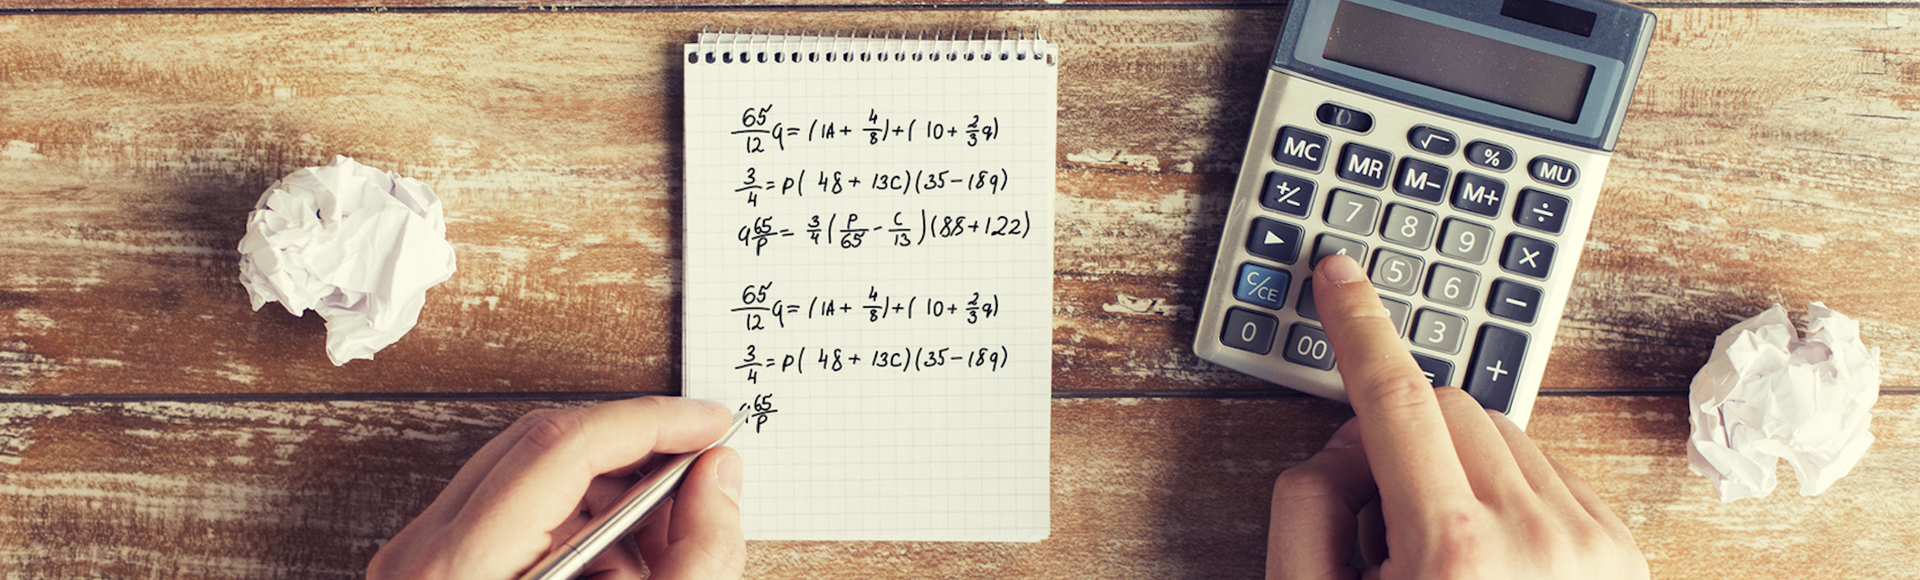 65/12 q = (1A + 4/8) + ( 10 + 2/3 q)
3/4 = P( 48 + 13C)(35 - 18q)
q 65/P = 3/4 (P/65 - C/13)(88 + 122)
65/12 q = (1A + 4/8) + ( 10 + 2/3 q)
3/4 = P( 48 + 13C)(35 - 18q)
65/P
√ % MU
MC MR M- M+ ÷
+/- 7 8 9 ×
▶ 4 5 6 -
C/CE 3 +
0 00 =